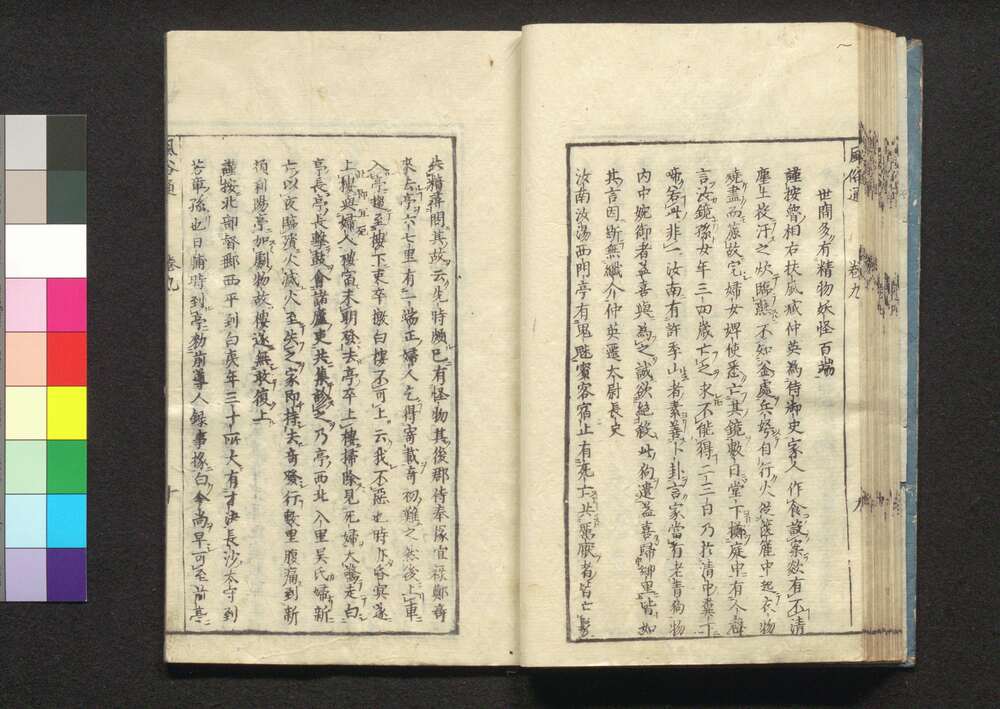 風俗通 卷九 九
世間多有精物妖怪百端
謹按魯相右扶風臧仲英為侍御史家人作食設案欲有不清
塵土投汙之炊臨熟不知釜處兵弩自行火從篋簏中起衣物
燒盡而簏故完婦女婢使悉亡其鏡數日堂下擲庭中有人聲
言汝鏡孫女年三四歲亡之求不能得二三日乃於清中糞下
啼若此非一汝南有許季山者素善卜卦言家當有老青狗物
內中婉御者益喜與為之誠欲絕殺此狗遣益喜歸鄉里皆如
其言因斷無纖介仲英遷太尉長史
汝南汝陽西門亭有鬼魅賓客宿止有死亡其厲厭者皆亡髮
失精尋問其故云先時頗已有怪物其後郡侍奉掾宜祿鄭奇
來去亭六七里有一端正婦人乞得寄載奇初難之然後上車
入亭趨至樓下吏卒檄白樓不可上云我不惡也時亦昏冥遂
上樓與婦人棲宿未明發去亭卒上樓掃除見死婦大驚走白
亭長亭長擊鼓會諸廬吏共集診之乃亭西北八里吳氏婦新
亡以夜臨殯火滅火至失之家即持去奇發行數里腹痛到新
頓利陽亭加劇物故樓遂無敢復上
謹按北部督郵西平到伯夷年三十所大有才決長沙太守到
若章孫也日晡時到亭勑前導人錄事掾白今尚早可至前亭
卷九 十